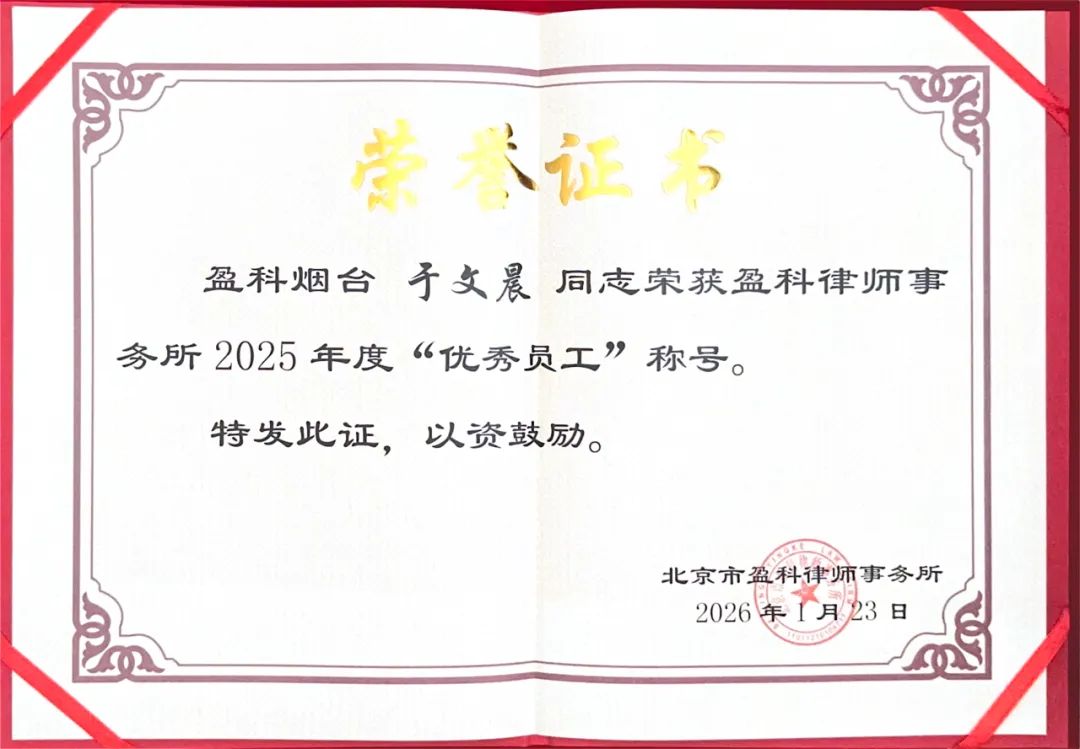 荣誉证书
盈科烟台 于文晨 同志荣获盈科律师事
务所 2025 年度“优秀员工”称号。
特发此证，以资鼓励。
北京市盈科律师事务所
2026 年 1 月 23 日